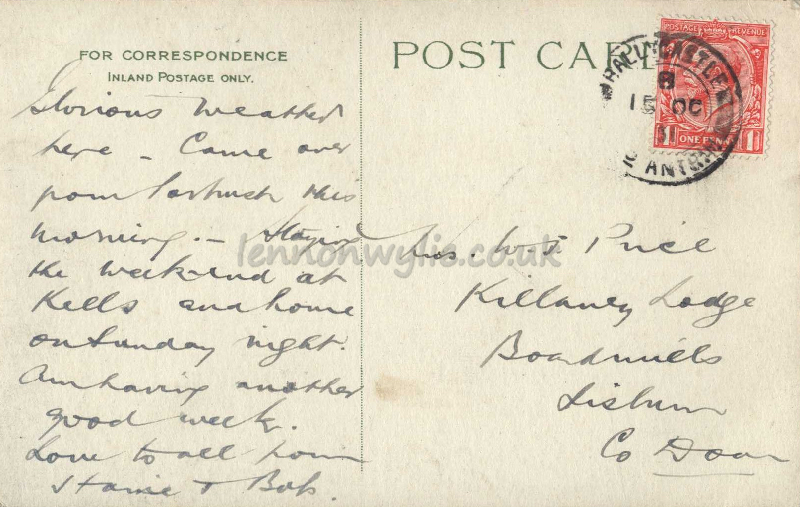 FOR CORRESPONDENCE
INLAND POSTAGE ONLY.
Glorious weather
here – Came over
from Portrush this
morning. – Staying
the week-end at
Kells and home
on Sunday night.
Am having another
good week.
Love to all from
& Bob.
POST CARD
POSTAGE REVENUE
ONE PENNY
BALLYCASTLE
15 OC
31
CO ANTRIM
lennonwylie.co.uk
Mrs. W. J. Price
Killaney Lodge
Boardmills
Lisburn
Co Down